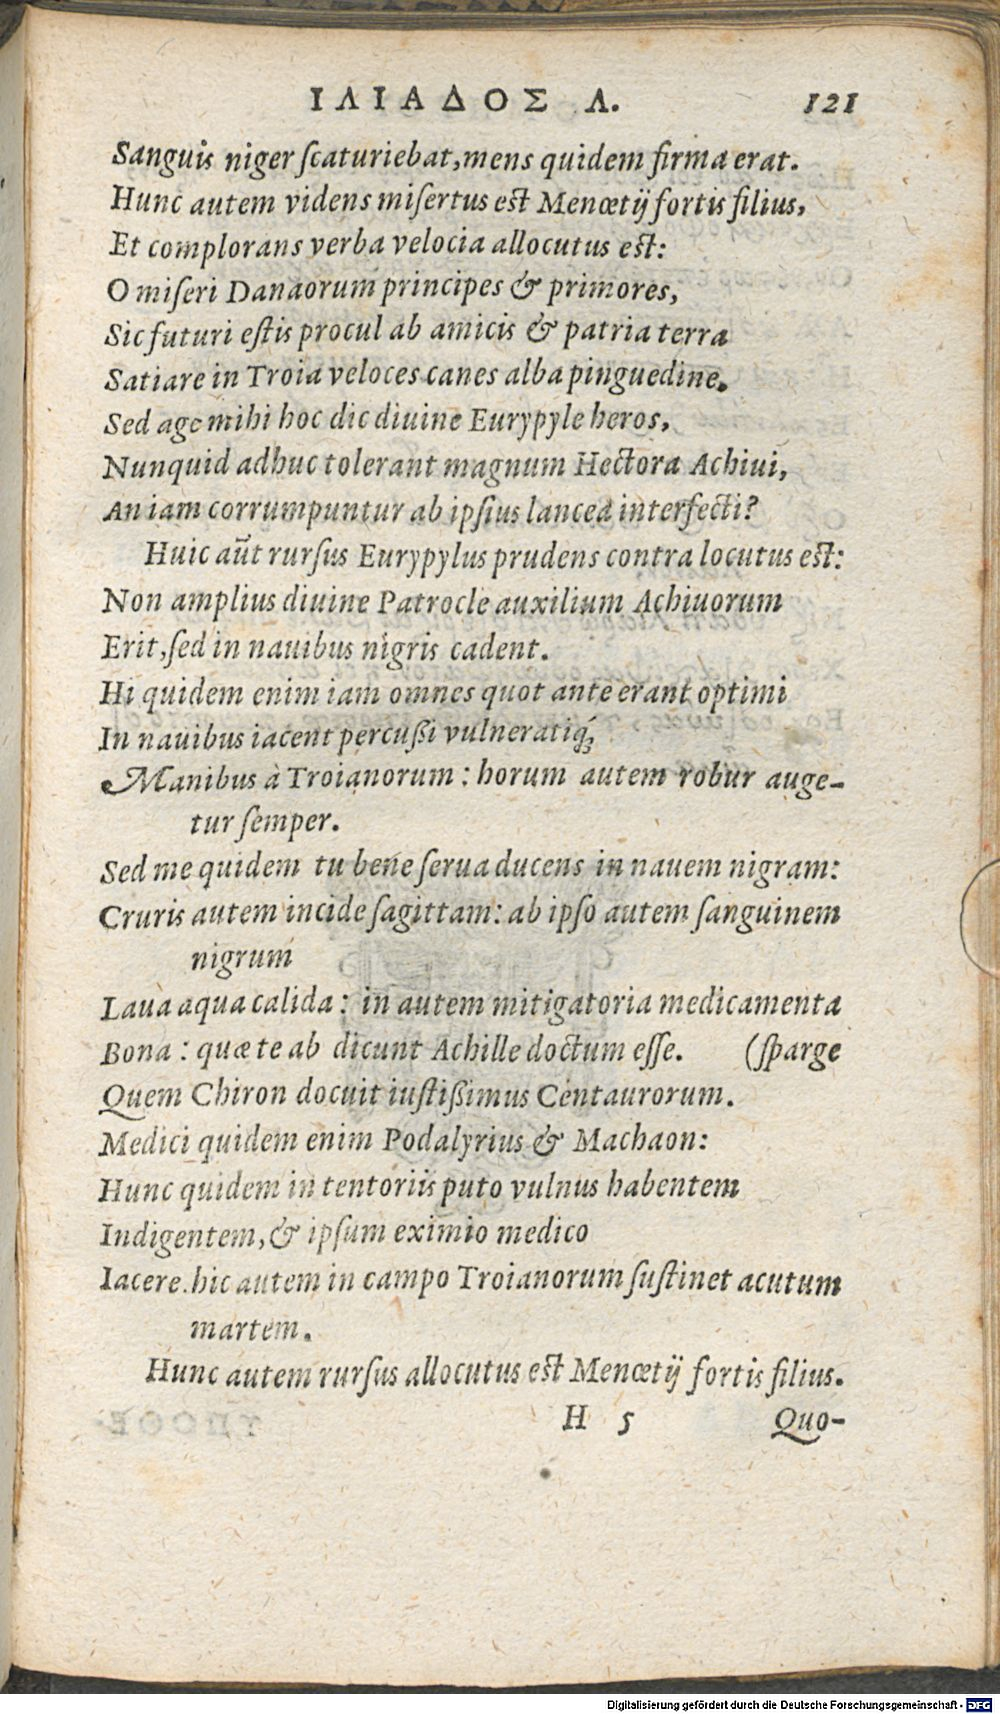 ΙΛΙΑΔΟΣ Λ. 121
Sanguis niger ſcaturiebat, mens quidem firma erat.
Hunc autem videns miſertus est Menœtij fortis filius,
Et complorans verba velocia allocutus est:
O miſeri Danaorum principes & primores,
Sic futuri eſtis procul ab amicis & patria terra
Satiare in Troia veloces canes alba pinguedine.
Sed age mihi hoc dic diuine Eurypyle heros,
Nunquid adhuc tolerant magnum Hectora Achiui,
An iam corrumpuntur ab ipſius lancea interfecti?
Huic aūt rurſus Eurypylus prudens contra locutus est:
Non amplius diuine Patrocle auxilium Achiuorum
Erit, ſed in nauibus nigris cadent.
Hi quidem enim iam omnes quot ante erant optimi
In nauibus iacent percußi vulneratiq́;
Manibus à Troianorum: horum autem robur auge-
tur ſemper.
Sed me quidem tu bene ſerua ducens in nauem nigram:
Cruris autem incide ſagittam: ab ipſo autem ſanguinem
nigrum
Laua aqua calida: in autem mitigatoria medicamenta
Bona: quæ te ab dicunt Achille doctum eſſe. (ſparge
Quem Chiron docuit iuſtißimus Centaurorum.
Medici quidem enim Podalyrius & Machaon:
Hunc quidem in tentoriis puto vulnus habentem
Indigentem, & ipſum eximio medico
Iacere. hic autem in campo Troianorum ſuſtinet acutum
martem.
Hunc autem rurſus allocutus est Menœtij fortis filius.
H 5 Quo-
Digitalisierung gefördert durch die Deutsche Forschungsgemeinschaft - DFG